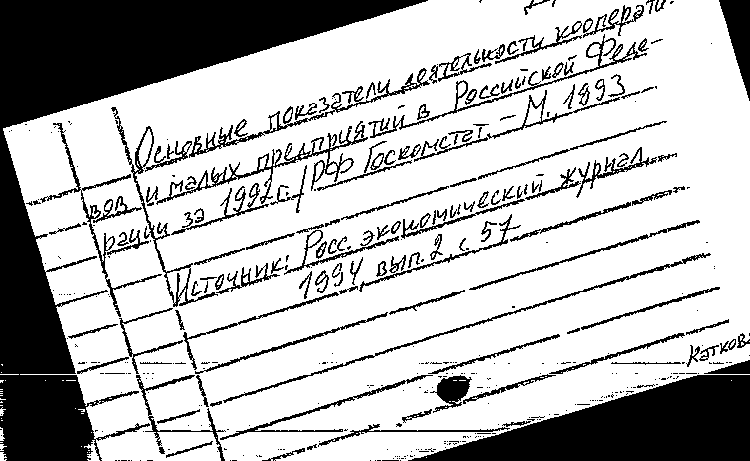 Основные показатели деятельности кооперати-
вов и малых предприятий в Российской Феде-
рации за 1992г. / РФ Госкомстат. – М., 1993
Источник: Росс. экономический журнал.
1994, вып. 2, с. 57
Каткова